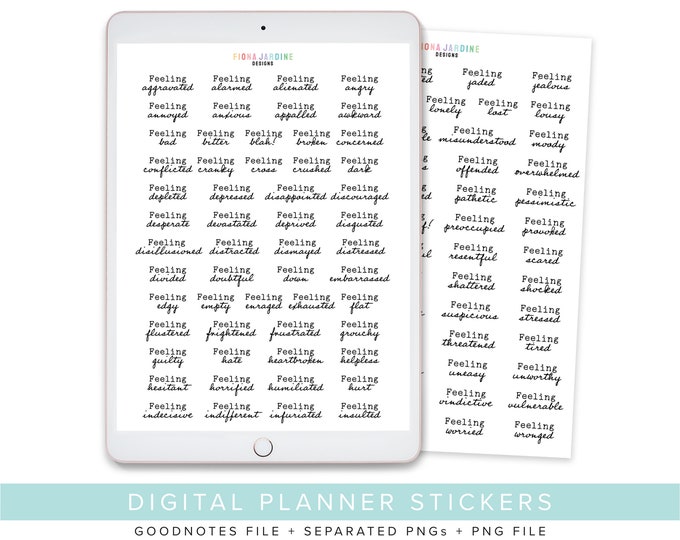 FIONA JARDINE
DESIGNS
Feeling Feeling Feeling Feeling
aggravated alarmed alienated angry
Feeling Feeling Feeling Feeling
annoyed anxious appalled awkward
Feeling Feeling Feeling Feeling Feeling
bad bitter blah! broken concerned
Feeling Feeling Feeling Feeling Feeling
conflicted cranky cross crushed dark
Feeling Feeling Feeling Feeling
depleted depressed disappointed discouraged
Feeling Feeling Feeling Feeling
desperate devastated deprived disgusted
Feeling Feeling Feeling Feeling
disillusioned distracted dismayed distressed
Feeling Feeling Feeling Feeling
divided doubtful down embarrassed
Feeling Feeling Feeling Feeling Feeling
edgy empty enraged exhausted flat
Feeling Feeling Feeling Feeling
flustered frightened frustrated grouchy
Feeling Feeling Feeling Feeling
guilty hate heartbroken helpless
Feeling Feeling Feeling Feeling
hesitant horrified humiliated hurt
Feeling Feeling Feeling Feeling
indecisive indifferent infuriated insulted
FIONA JARDINE
DESIGNS
Feeling Feeling
jaded jealous
Feeling Feeling Feeling
lonely lost lousy
Feeling Feeling
misunderstood moody
Feeling Feeling
offended overwhelmed
Feeling Feeling
pathetic pessimistic
Feeling Feeling
preoccupied provoked
Feeling Feeling
resentful scared
Feeling Feeling
shattered shocked
Feeling Feeling
suspicious stressed
Feeling Feeling
threatened tired
Feeling Feeling
uneasy unworthy
Feeling Feeling
vindictive vulnerable
Feeling Feeling
worried wronged
DIGITAL PLANNER STICKERS
GOODNOTES FILE + SEPARATED PNGs + PNG FILE